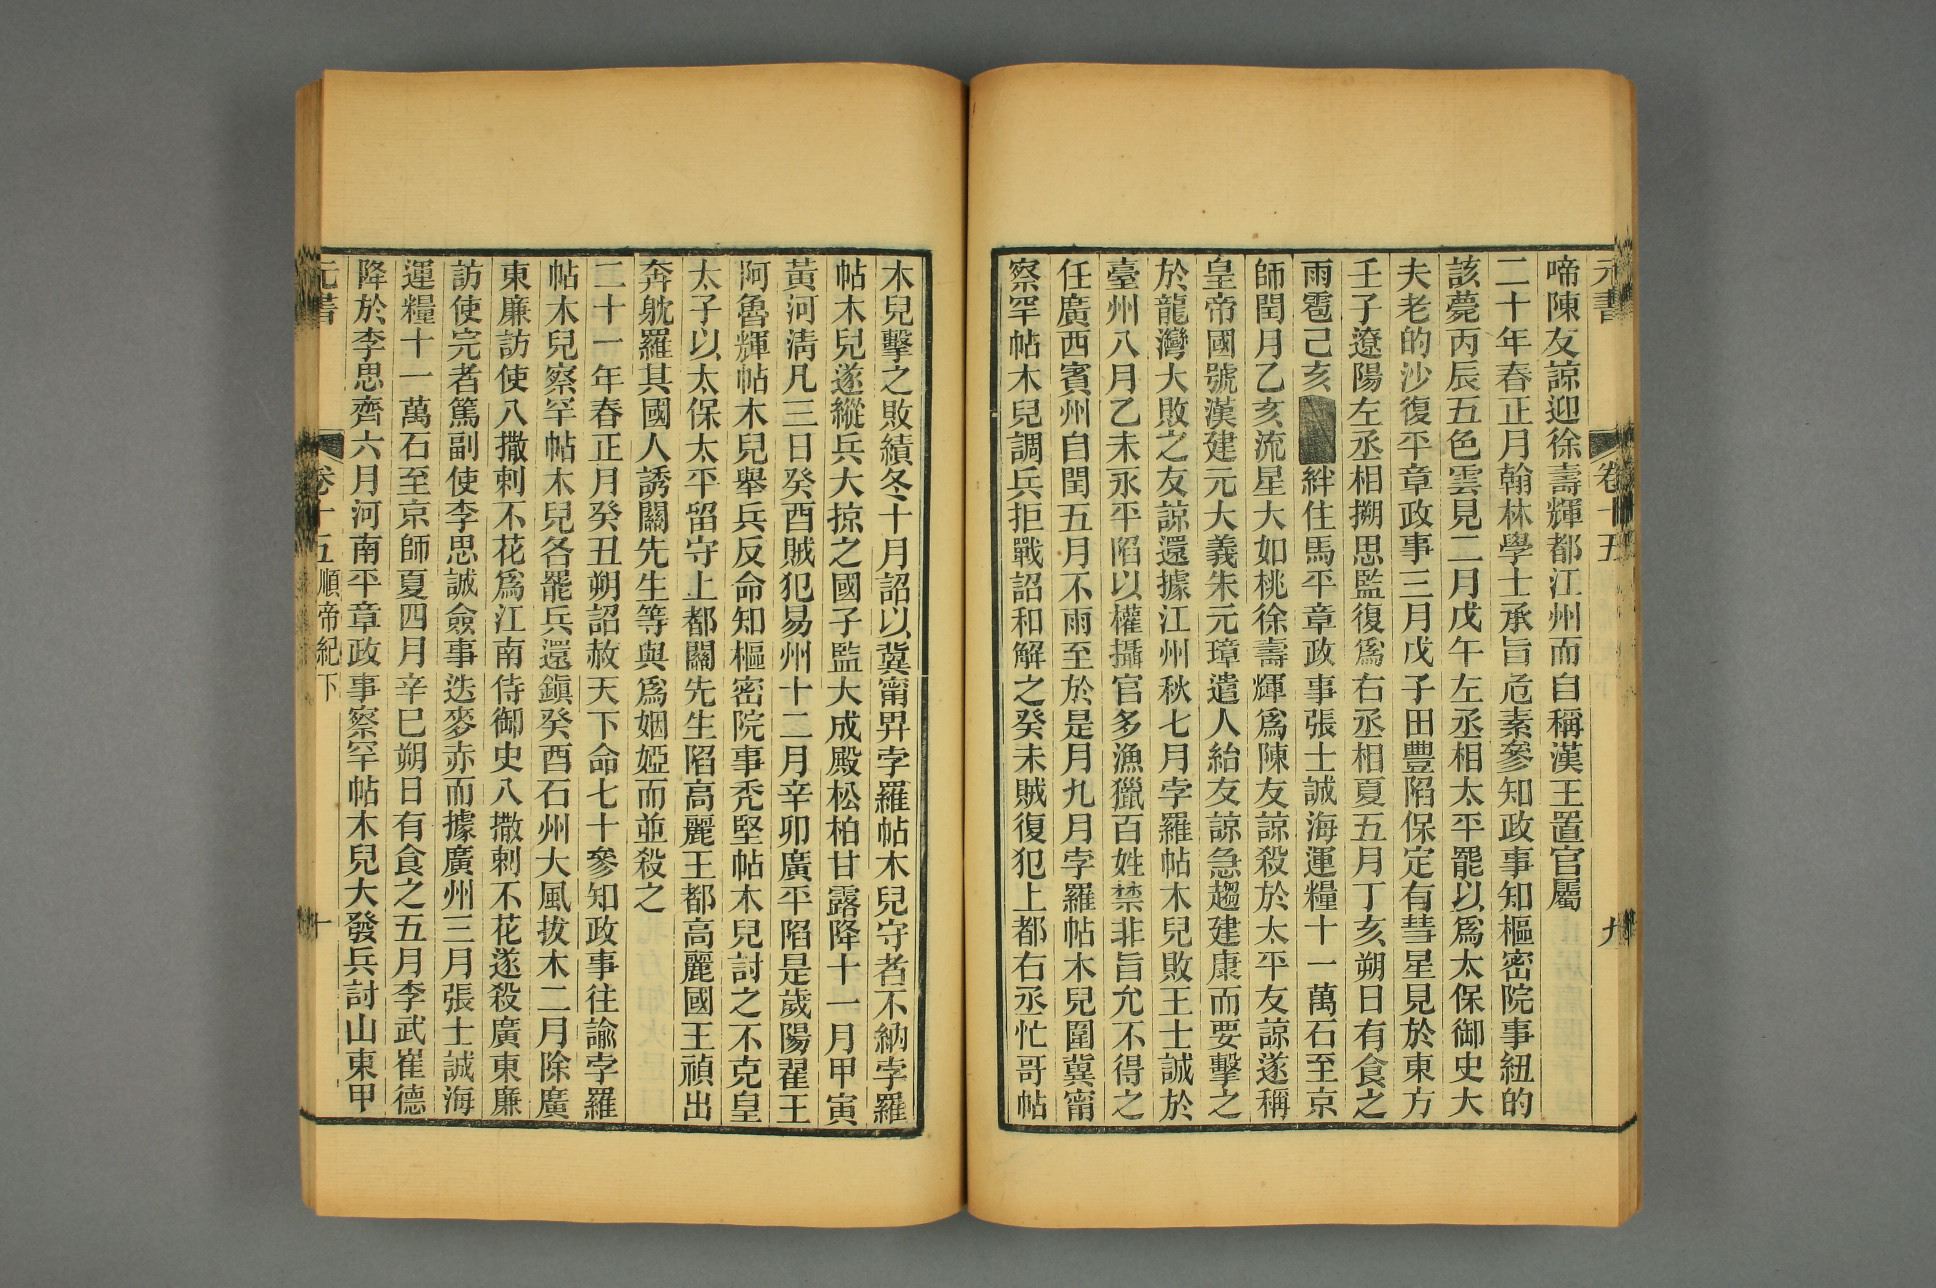 元書
卷十五
九
啼陳友諒迎徐壽輝都江州而自稱漢王置官屬
二十年春正月翰林學士承旨危素參知政事知樞密院事紐的
該薨丙辰五色雲見二月戊午左丞相太平罷以爲太保御史大
夫老的沙復平章政事三月戊子田豐陷保定有彗星見於東方
壬子遼陽左丞相搠思監復爲右丞相夏五月丁亥朔日有食之
雨雹己亥絆住馬平章政事張士誠海運糧十一萬石至京
師閏月乙亥流星大如桃徐壽輝爲陳友諒殺於太平友諒遂稱
皇帝國號漢建元大義朱元璋遣人紿友諒急趨建康而要擊之
於龍灣大敗之友諒還據江州秋七月孛羅帖木兒敗王士誠於
臺州八月乙未永平陷以權攝官多漁獵百姓禁非旨允不得之
任廣西賓州自閏五月不雨至於是月九月孛羅帖木兒圍冀甯
察罕帖木兒調兵拒戰詔和解之癸未賊復犯上都右丞忙哥帖
木兒擊之敗績冬十月詔以冀甯畀孛羅帖木兒守者不納孛羅
帖木兒遂縱兵大掠之國子監大成殿松柏甘露降十一月甲寅
黃河淸凡三日癸酉賊犯易州十二月辛卯廣平陷是歲陽翟王
阿魯輝帖木兒舉兵反命知樞密院事禿堅帖木兒討之不克皇
太子以太保太平留守上都關先生陷高麗王都高麗國王禎出
奔躭羅其國人誘關先生等與爲姻婭而並殺之
二十一年春正月癸丑朔詔赦天下命七十參知政事往諭孛羅
帖木兒察罕帖木兒各罷兵還鎭癸酉石州大風拔木二月除廣
東廉訪使八撒剌不花爲江南侍御史八撒剌不花遂殺廣東廉
訪使完者篤副使李思誠僉事迭麥赤而據廣州三月張士誠海
運糧十一萬石至京師夏四月辛巳朔日有食之五月李武崔德
降於李思齊六月河南平章政事察罕帖木兒大發兵討山東甲
元書
卷十五
順帝紀下
十